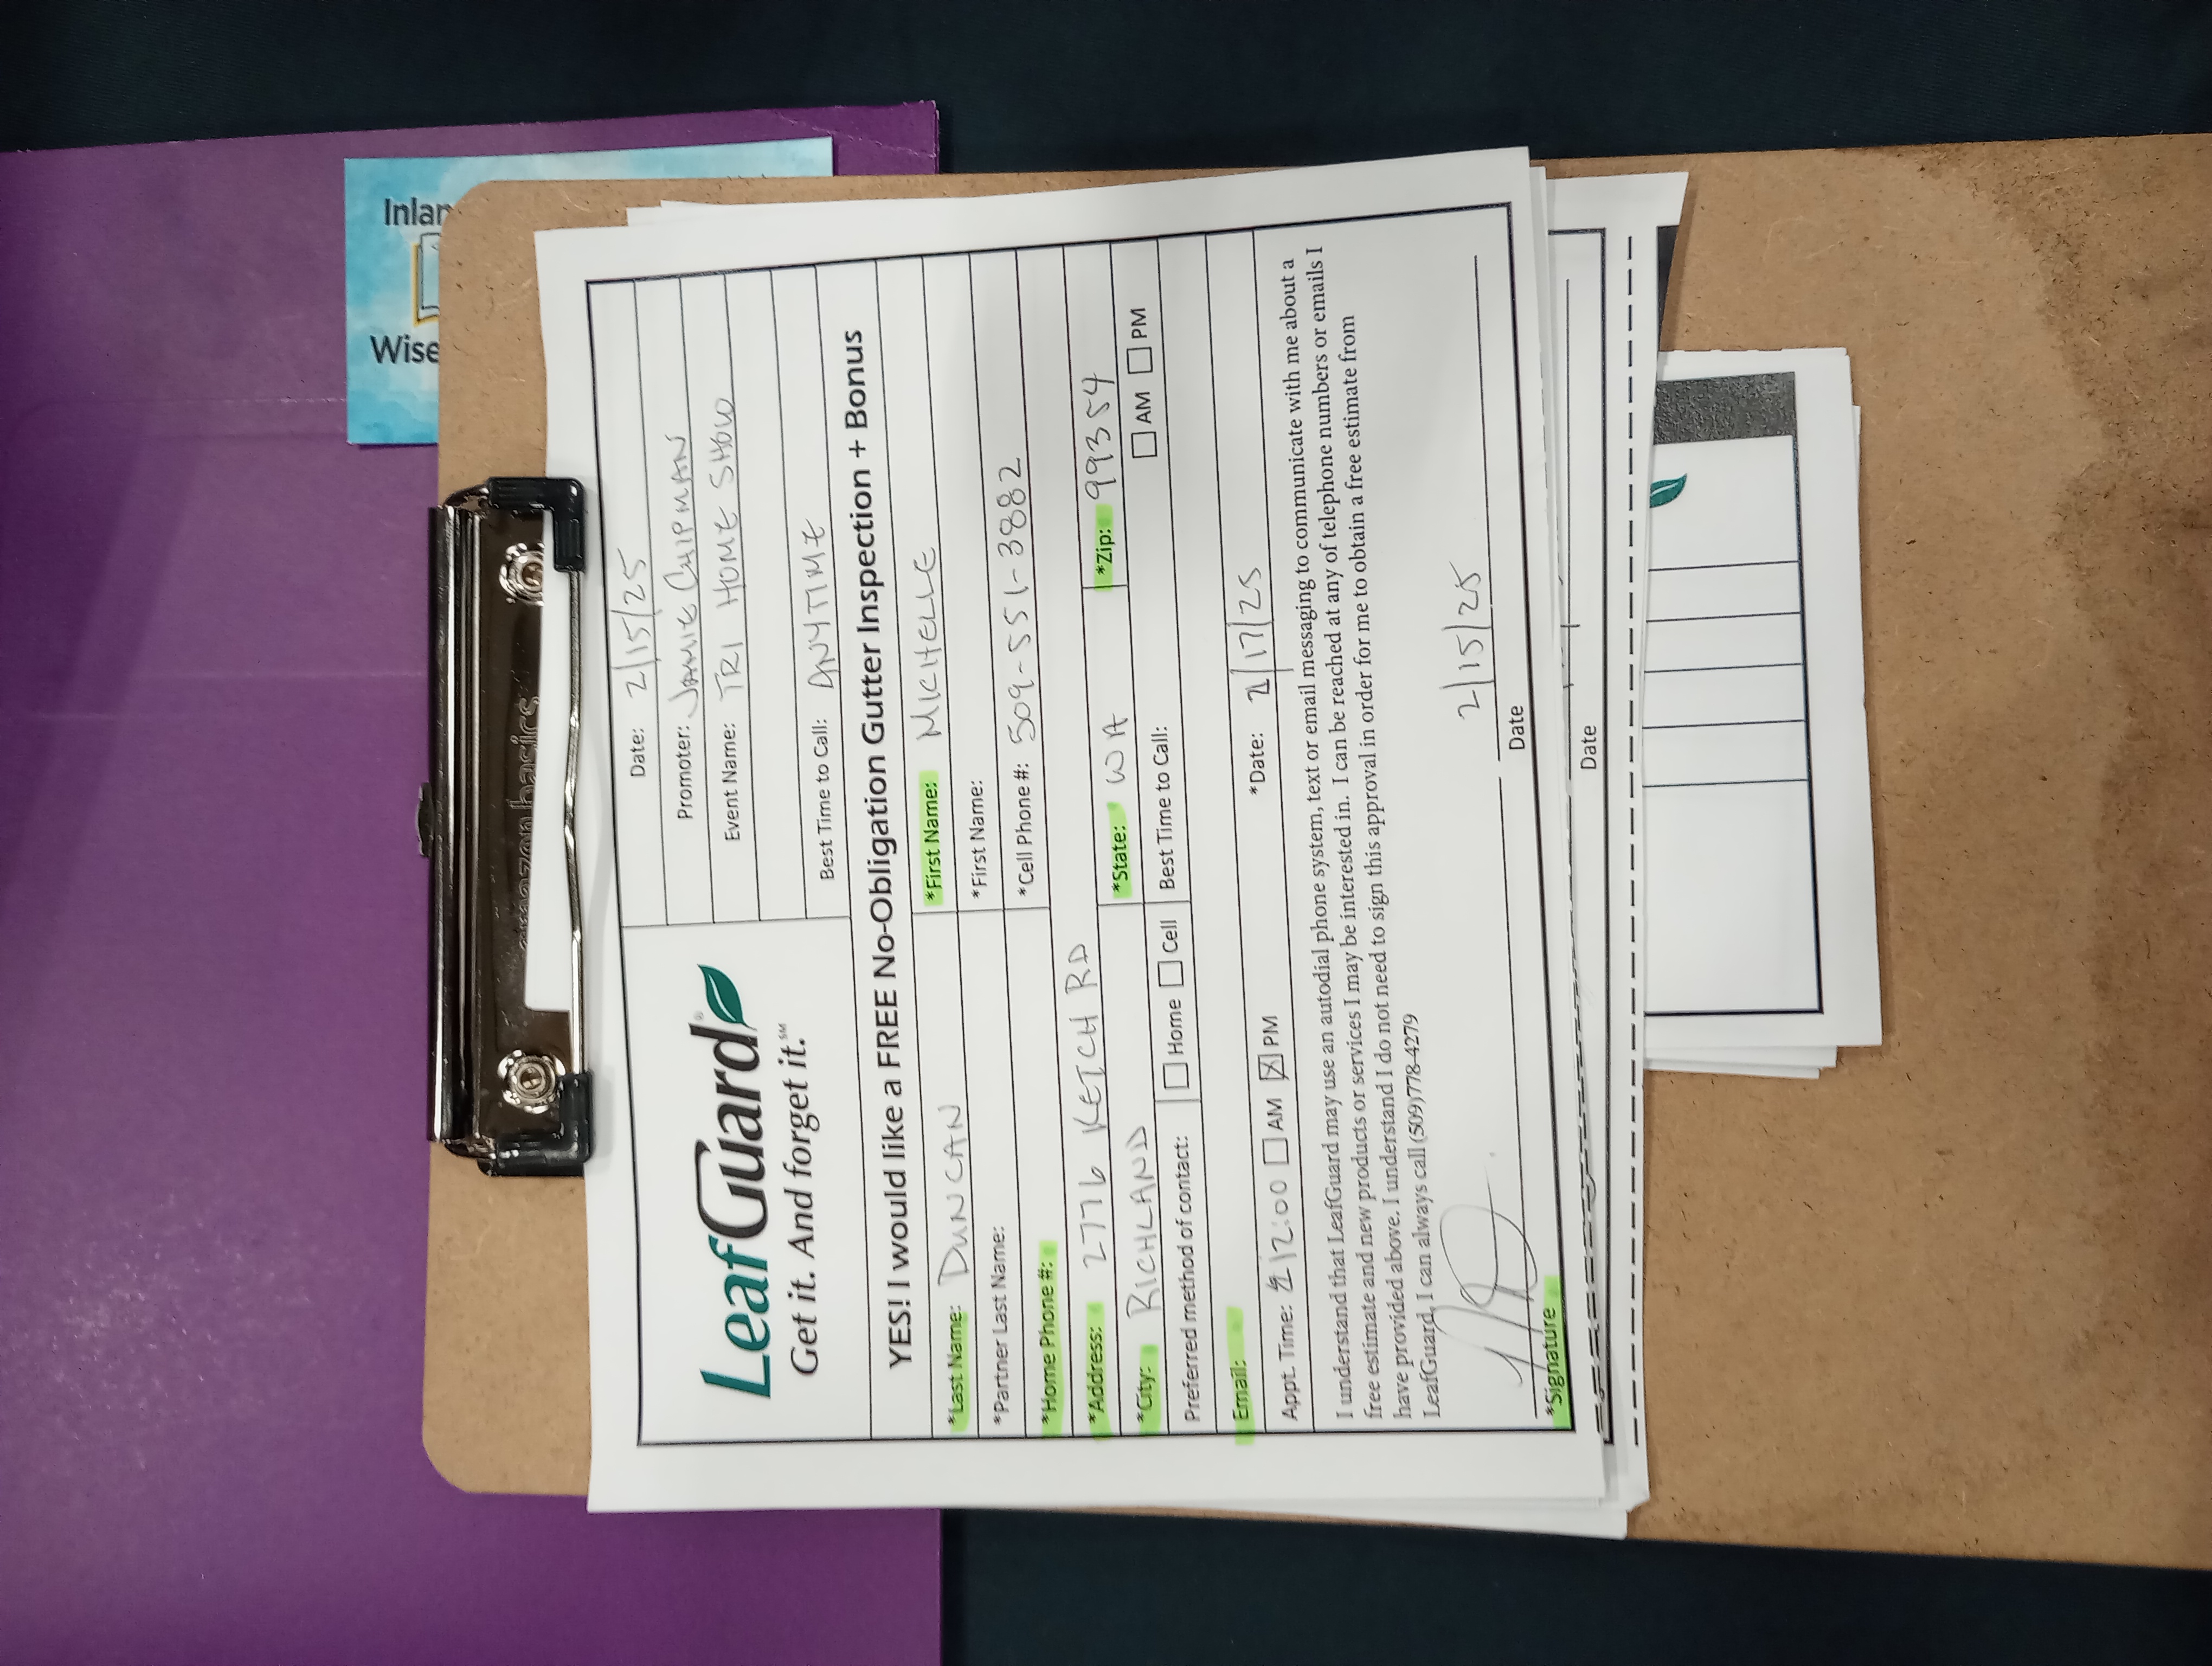 Inlan
Wise
amazon basics
Date: 2/15/25
Promoter: JAMIE CHIPMAN
Event Name: TRI HOME SHOW
LeafGuard®
Get it. And forget it.℠
Best Time to Call: ANYTIME
YES! I would like a FREE No-Obligation Gutter Inspection + Bonus
*Last Name: DUNCAN *First Name: MICHELLE
*Partner Last Name: *First Name:
*Home Phone #: *Cell Phone #: 509-551-3882
*Address: 2776 KETCH RD
*City: RICHLAND *State: WA *Zip: 99354
Preferred method of contact: Home Cell Best Time to Call: AM PM
Email:
Appt. Time: 12:00 AM PM *Date: 2/17/25
I understand that LeafGuard may use an autodial phone system, text or email messaging to communicate with me about a
free estimate and new products or services I may be interested in. I can be reached at any of telephone numbers or emails I
have provided above. I understand I do not need to sign this approval in order for me to obtain a free estimate from
LeafGuard, I can always call (509)778-4279
2/15/25
*Signature Date
Date